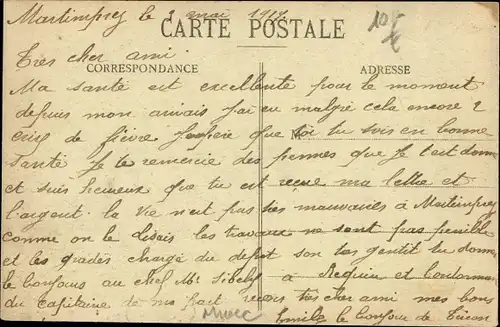 Martimprey le 2 mai 1912
105
€
CARTE POSTALE
Tres cher ami
CORRESPONDANCE
ADRESSE
Ma santé est excellente pour le moment
depuis mon arrivais j'ai eu malgré cela encore 2
crise de fièvre J'espère que toi tu sois en bonne
santé Je te remercie des peines que je t'ait donné
et suis heureux que tu est recue ma lettre et
l'argent. la vie n'est pas très mauvaise à Martimprey
comme on le disais les travaux ne sont pas penible
et les gradés chargé du depot son tes gentil tu donneras
le bonjours au chef Mr Sibely à Requin et
du Capitaine de ma part recois tres cher ami mes bons
Emile le bonjour de
Maroc